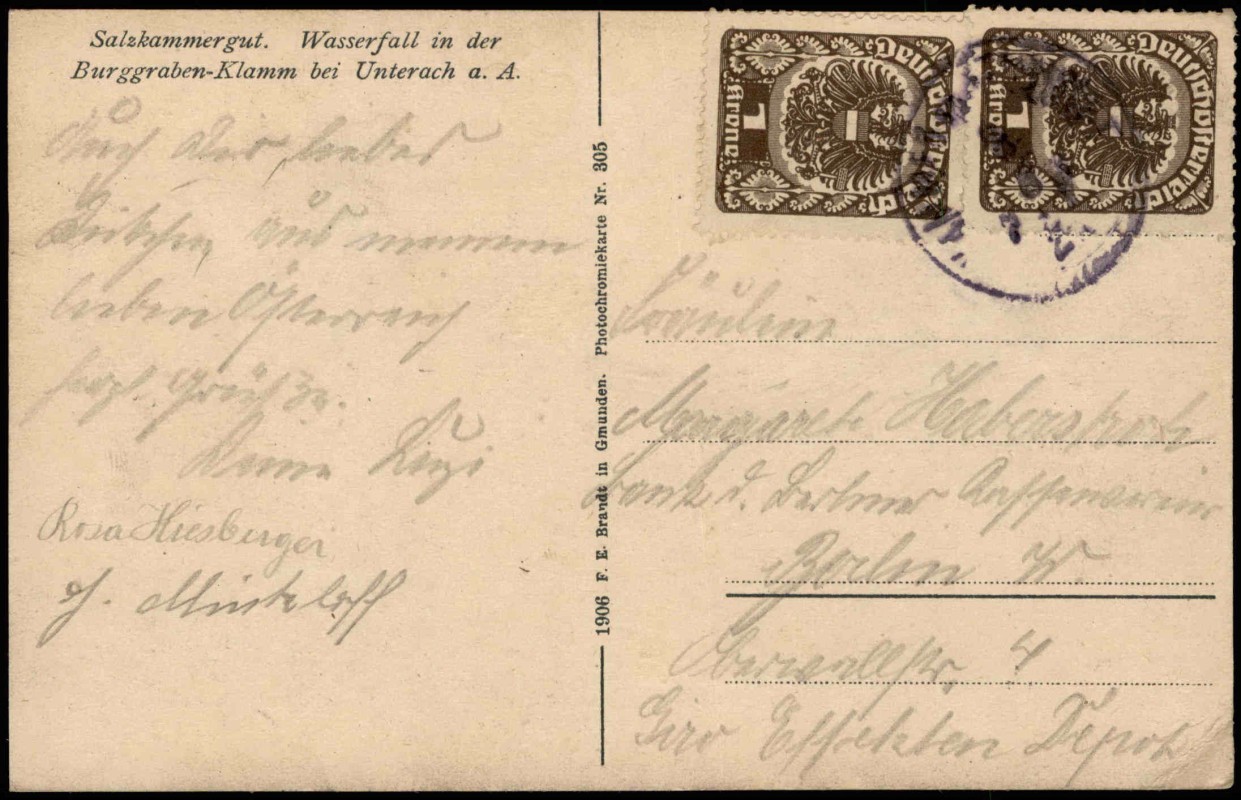 Salzkammergut. Wasserfall in der
Burggraben-Klamm bei Unterach a. A.
Auch Dir liebes
aus meinem
lieben Österreich
herzl. Grüße.
Deine
Rosa Hiesberger
1906 F. E. Brandt in Gmunden. Photochromiekarte Nr. 305
Deutschösterreich
1 Krone
Deutschösterreich
1 Krone
Fräulein
Margarete Haberstroh
Bank d. Berliner Kassenverein
Berlin W.
Oberwallstr. 4
Giro Effekten Depot